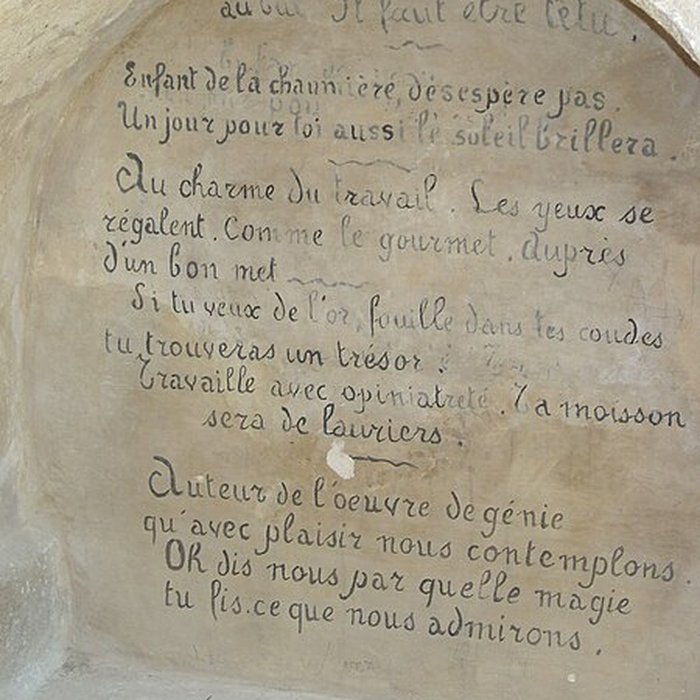 au but Il faut être têtu.
Enfant de la chaumière, désespère pas.
Un jour pour toi aussi le soleil brillera.
Au charme du travail. Les yeux se
régalent. Comme le gourmet. Auprès
d'un bon met
Si tu veux de l'or, fouille dans tes coudes
tu trouveras un trésor.
Travaille avec opiniatreté. Ta moisson
sera de lauriers.
Auteur de l'oeuvre de génie
qu'avec plaisir nous contemplons.
Oh dis nous par quelle magie
tu fis.ce que nous admirons.